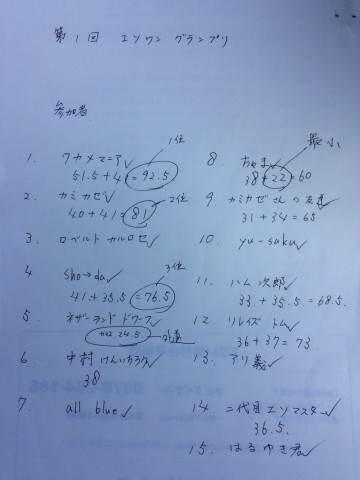 第1回 エソワン グランプリ
参加者
1. ワカメマニア✓ 1位
51.5+41=92.5
2. カミカゼ✓ 2位
40+41=81
3. ロベルト カルロセ✓
4. sho→da✓ 3位
41+35.5=76.5
5. ネザーランド ドワーフ✓
24.5
6. 中村 けんいちろう✓
38
7. all blue✓
8. ちゃま✓ 最小
38+22=60
9. カミカゼさんの友達✓
31+34=65
10. yu-saku✓
11. ハム 次郎✓
33.+35.5=68.5
12. リレイズ トム✓
36+37=73
13. アリ義✓
14. 二代目エソマスター✓
36.5.
15. はるゆき君✓